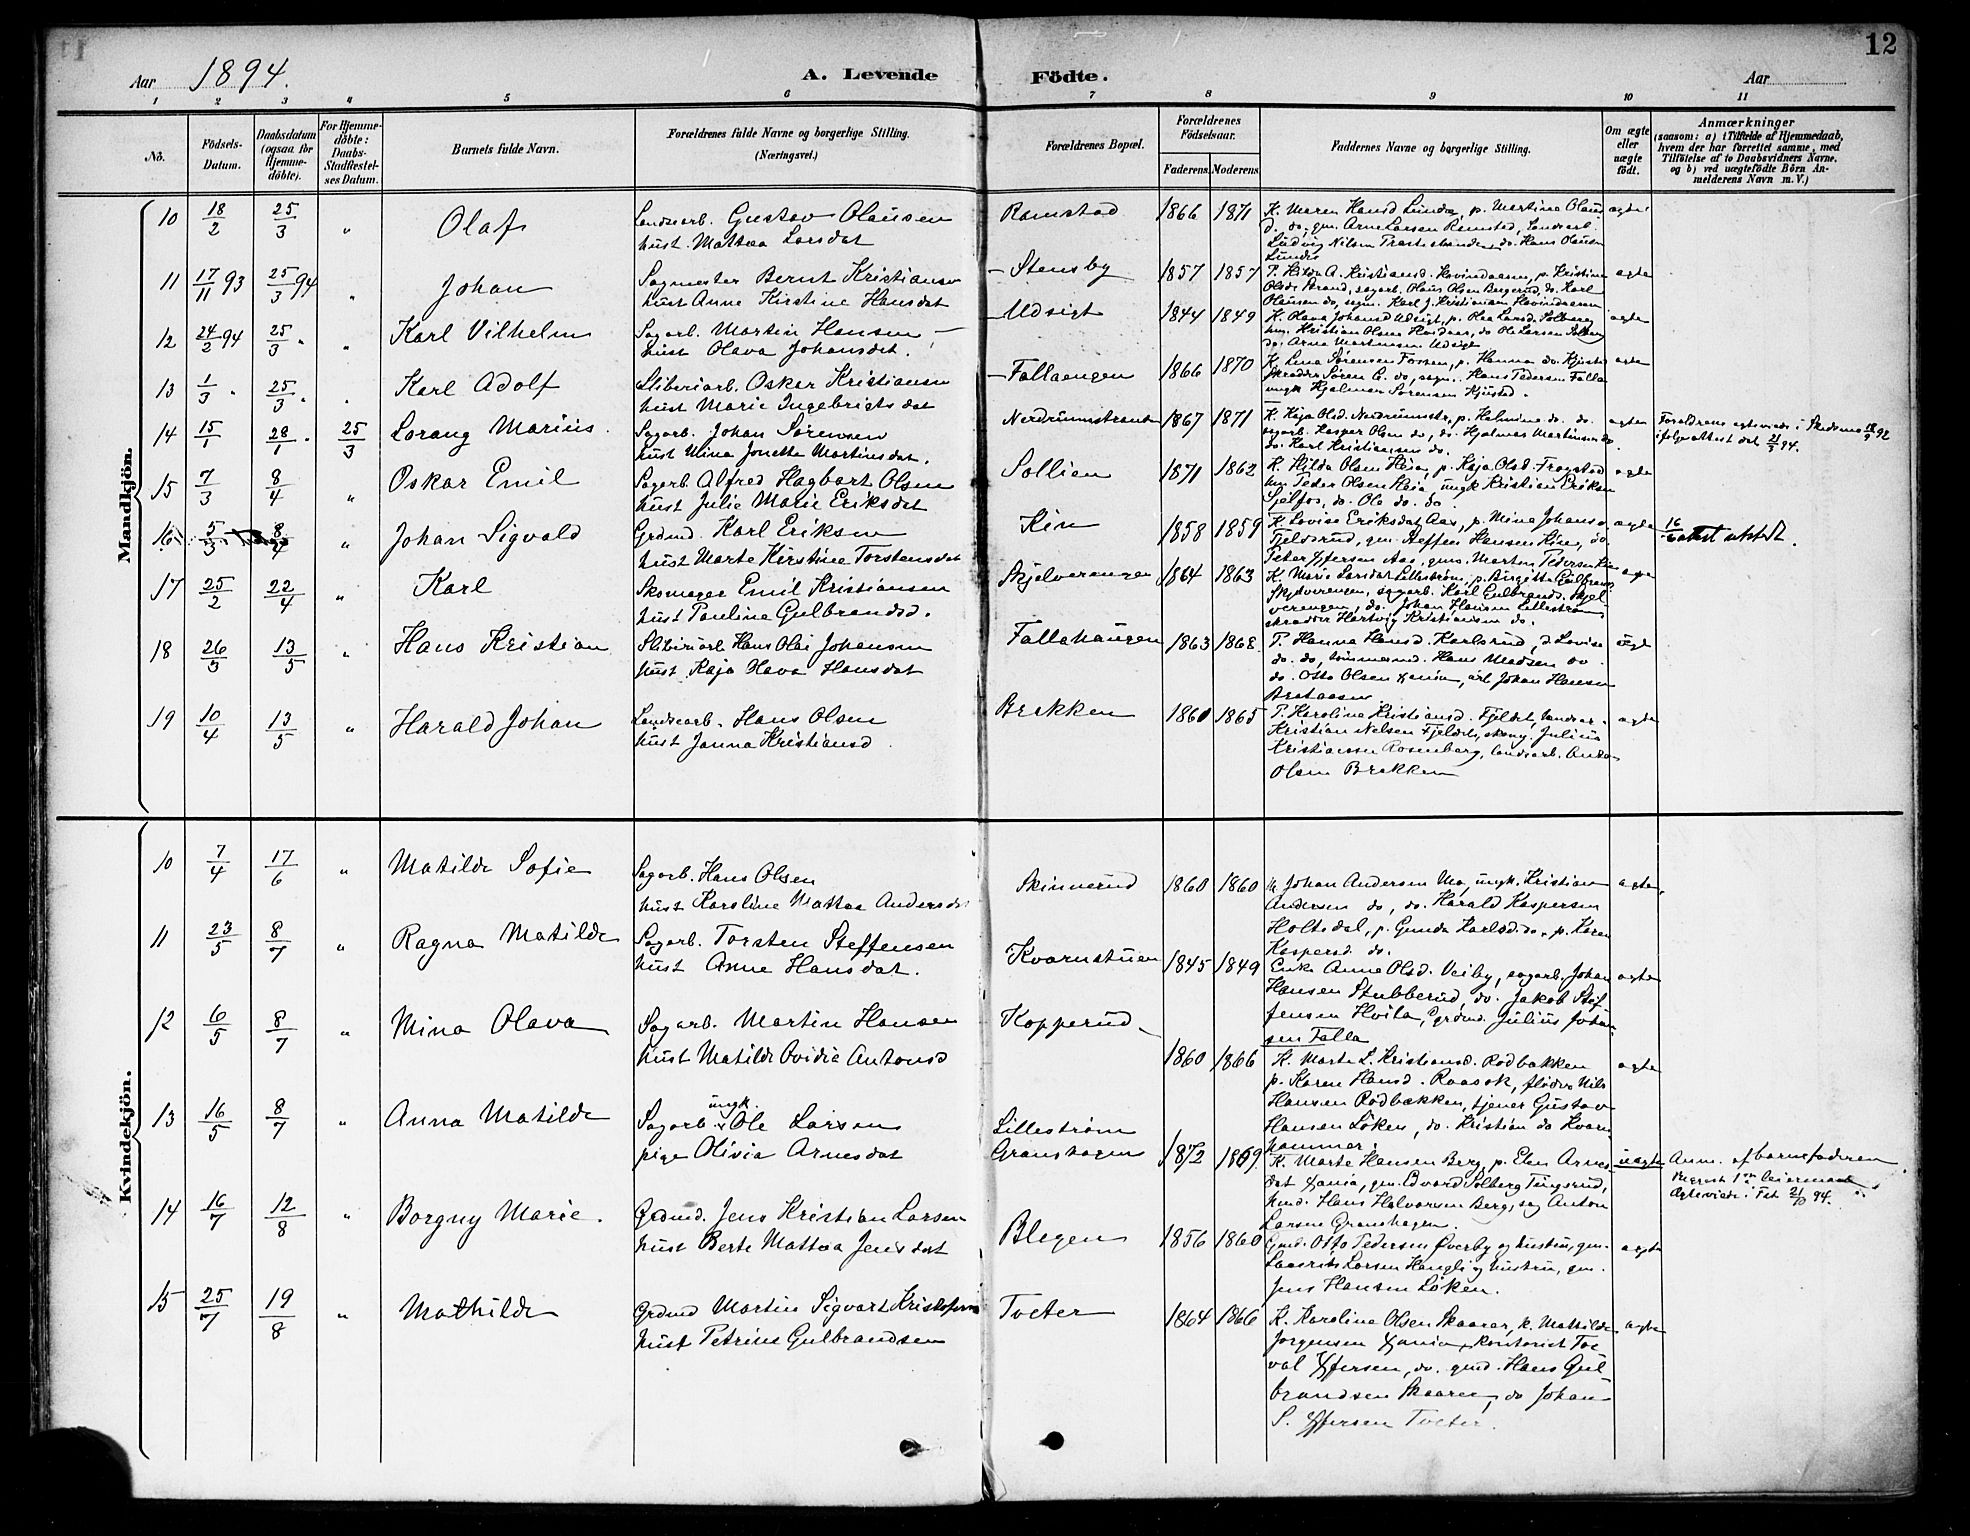 12
Aar 1894.
A. Levende Födte.
Aar
1 2 3 4 5 6 7 8 9 10 11
Nò.
Födsels-Datum.
Daabsdatum (ogsaa for Hjemme-döbte).
For Hjemme-döbte: Daabs-Stadfæstel-ses Datum.
Barnets fulde Navn.
Forældrenes fulde Navne og borgerlige Stilling.
(Næringsvei.)
Forældrenes Bopæl.
Forældrenes Födselsaar.
Faderens. Moderens.
Faddernes Navne og borgerlige Stilling.
Om ægte eller uægte födt.
Anmærkninger
(saasom: a) i Tilfælde af Hjemmedaab,
hvem der har forrettet samme, med
Tilföielse af to Daabsvidners Navne,
og b) ved uægtefödte Börn An-
melderens Navn m. V.)
Mandkjön.
10 18/2 25/3 " Olaf
Landearb. Gustav Olausen
hust. Mathea Larsdat
Ramstad 1866 1871
K. Maren Hansd Linda, p. Martine Olaus
d. do, gm. Arne Larsen Remstad, landearb.
Ludvig Nilsen Træteskanden, do. Hans Olausen
Linder
ægte
11 17/11 93 25/3 94 " Johan
Sagmester Bernt Kristiansen
hust Anne Kirstine Hansdat
Stensby 1857 1857
P. Hilda A. Kristiansd. Hovindaasen, p. Kristine
Olsdt Strand, sagarb. Olaus Olsen Bergerud, do. Karl
Olausen do, sagm. Karl J. Kristiansen Hovindaasen
ægte
12 24/2 94 25/3 " " Karl Vilhelm
Sagarb. Martin Hansen
hust Olava Johansdat.
Udsigt 1844 1849
K. Olava Johansd Udsigt, p. Olea Larsd. Solberg
hm. Kristian Olsen Hvidsten, do Ole Larsen Solberg
do. Arne Martinsen Udsigt
ægte
13 1/3 " 25/3 " " Karl Adolf
Sliberiarb. Oskar Kristiansen
hust Marie Ingebrigtsdat
Fallaengen 1866 1870
K. Lina Sørensen Fossen, p. Hanna do. Kjustad
skrædder Søren C. do, sagm. Hans Pedersen Falla
ungk Hjalmar Sørensen Kjustad.
ægte
14 15/1 28/1 " 25/3 Lorang Marius.
Sagarb. Johan Sørensen
hust Mina Jonette Martinsdat.
Nerdrumstranden 1867 1871
K. Kaja Olsd. Nerdrumstr, p. Helmine do. do.
sagarb. Kasper Olsen do, do. Hjalmar Martinsen do
do. Karl Kristiansen do.
ægte
Forældrene ægteviede i Skedsmo 92
ifølge attest dat 94.
15 7/3 8/4 " Oskar Emil
Sagarb Alfred Hagbart Olsen
hust Julie Marie Eriksdat
Sollien 1871 1862
K. Hilda Olsen Heia, p. Kaja Olsd. Frogstad
hm. Peder Olsen Heia, ungk Kristian Eriksen
Sjelfos, do. Ole do. do
ægte
16 5/3 8/4 " Johan Sigvald
Grdmd. Karl Eriksen
hust Marte Kirstine Torstensdat
Kin 1858 1859
K. Lovise Eriksdat Aas, p. Mina Johansd
Tjeldsrud, gm. Steffen Hansen Kin, do.
Peter Effersen Aas, gm. Morten Pedersen Kin
ægte
16 attest utstedt.
17 25/2 22/4 " Karl
Skomager Emil Kristiansen
hust Pauline Gulbrandsd.
Skjelverengen 1864 1863
K. Marie Larsdat Lillestrøm, p. Birgitte Gulbrand
Skjelverengen, sagarb. Karl Gulbrands. Skjel-
verengen, do. Johan Hansen Lillestrøm
skrædder Hartvig Kristiansen do.
ægte
18 26/3 13/5 " Hans Kristian
Sliberiarb Hans Olai Johansen
hust. Kaja Hava Hansdat
Fallahaugen 1863 1868.
P. Hanna Hansd. Karlsrud, d Lovise
do. do, tømmermd. Hans Madsen do
do. Otto Olsen Xania, arb Johan Hansen
ægte
19 10/4 13/5 " Harald Johan
Landearb. Hans Olsen
hust Janna Kristiansd.
Brekken 1860 1865
P. Karoline Kristiansd. Fjeldet, landear-
Kristian Nelsen Fjeldet, skomg. Julius
Kristiansen Rosenberg, landearb. Anton
Olsen Brekken
ægte
Kvindekjön.
10 7/4 17/6 " Matilde Sofie
Sagarb. Hans Olsen
hust Karoline Mathea Andersdat
Skinnerud 1860 1860
M Johan Andersen Mo, ungk. Kristian
Andersen do, do. Harald Kaspersen
Holtedal, p. Gunda Karlsd. do, p. Karen
Kaspersd. do.
ægte.
11 23/5 8/7 " Ragna Matilde
Sagarb. Torsten Steffensen
hust Anne Hansdat.
Kvernstuen 1845 1849
Enke Anne Olsd. Veiby, sagarb. Johan
Hansen Stubberud, do. Jakob Stef
fensen Hvila, grdmd. Julius Johan-
sen Falla
ægte
12 6/5 8/7 " Mina Olava
Sagarb. Martin Hansen
hust Matilde Ovidia Antonsd
Kopperud 1860 1866
K. Marte L. Kristiansd. Rødbakken
p. Karen Hansd. Raasok, fløder Nils
Hansen Rødbakken, tjener Gustav
Hansen Løken, do. Kristian do Kvern-
hammer.
ægte
13 16/5 8/7 " Anna Matilde
Sagarb. ungk. Ole Larsen
pige Olivia Arnesdat
Lillestrøm
Granshagen 1872 1869.
K. Marte Hansen Berg, p. Elen Arnes
dat Xania, gm. Edvard Solberg Tingsrud,
hmd. Hans Halvorsen Berg, sag Anton
Larsen Granshagen.
uægte
Anm. af barnefaderen
Begges 1ste leiermaal
Ægteviede i Fet 94.
14 16/7 12/8 " Borgny Marie.
Grdmd. Jens Kristian Larsen
hust Berte Mathea Jensdat
Blegen 1856 1860
Gmd. Otto Pedersen Øverby og hustru, gm.
Laurits Larsen Hengli og hustru, gm.
Jens Hansen Løken.
ægte
15 25/7 19/8 " Mathilde
Grdmd Martin Sigvart Kristofersen
hust Petrine Gulbrandsen
Tveter 1864 1866
K. Karoline Olsen Skaarer, k. Mathilde
Jørgensen Xania, kontorist Tor
val Effersen, do. gmd. Hans Gul-
brandsen Skaarer, do Johan
S. Effersen Tveter.
ægte